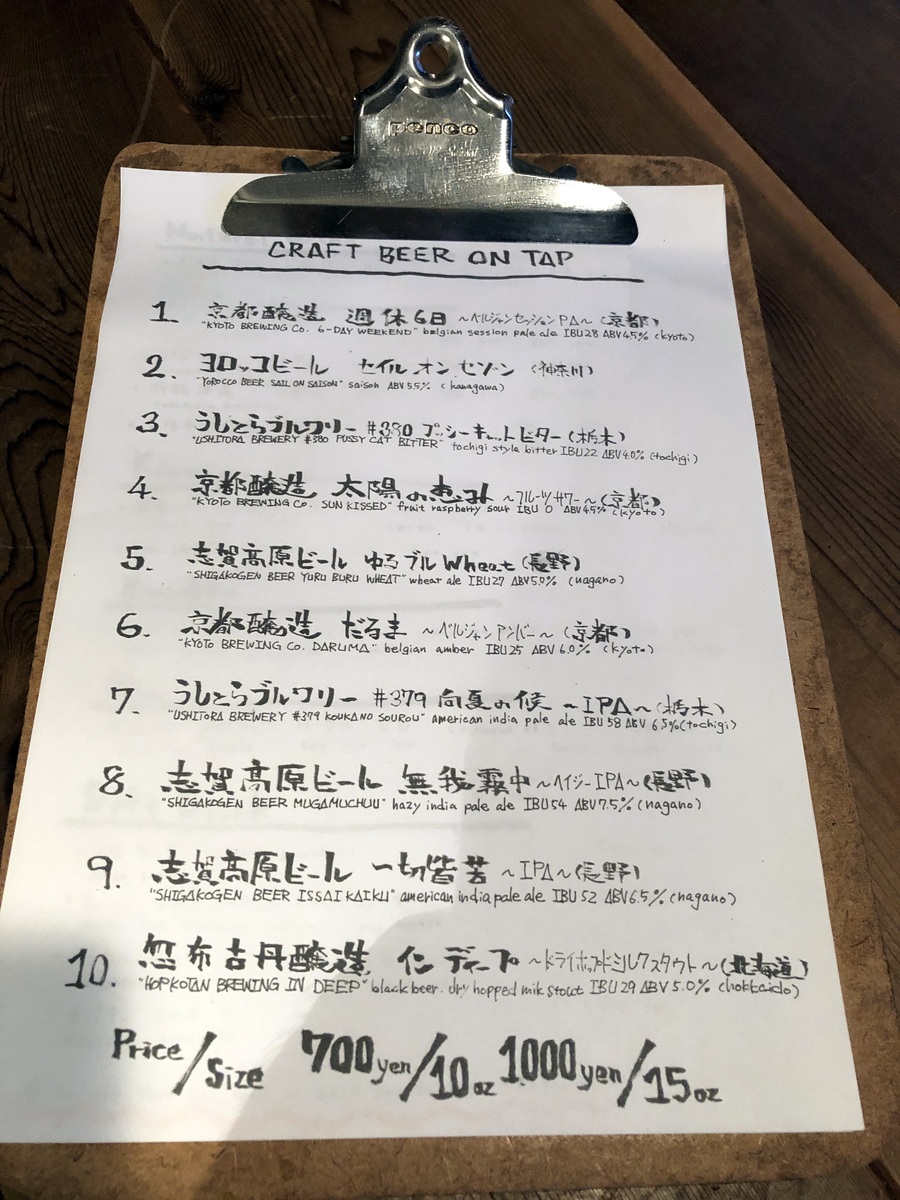 penco
CRAFT BEER ON TAP
1. 京都醸造 週休6日 ~ベルジャンセッションPA~ (京都)
"KYOTO BREWING Co. 6-DAY WEEKEND" belgian session pale ale IBU28 ABV4.5% (kyoto)
2. ヨロッコビール セイル オン セゾン (神奈川)
"YOROCCO BEER SAIL ON SAISON" saison ABV5.5% (kanagawa)
3. うしとらブルワリー #380 プッシーキャットビター (栃木)
"USHITORA BREWERY #380 PUSSY CAT BITTER" tochigi style bitter IBU22 ABV4.0% (tochigi)
4. 京都醸造 太陽の恵み ~フルーツサワー~ (京都)
"KYOTO BREWING Co. SUN KISSED" fruit raspberry sour IBU 0 ABV4.5% (kyoto)
5. 志賀高原ビール ゆるブル Wheat (長野)
"SHIGAKOGEN BEER YURU BURU WHEAT" wheat ale IBU27 ABV5.0% (nagano)
6. 京都醸造 だるま ~ベルジャンアンバー~ (京都)
"KYOTO BREWING Co. DARUMA" belgian amber IBU25 ABV 6.0% (kyoto)
7. うしとらブルワリー #379 向夏の候 ~IPA~ (栃木)
"USHITORA BREWERY #379 KOUKANO SOUROU" american india pale ale IBU58 ABV 6.5% (tochigi)
8. 志賀高原ビール 無我霧中 ~ヘイジーIPA~ (長野)
"SHIGAKOGEN BEER MUGAMUCHUU" hazy india pale ale IBU54 ABV7.5% (nagano)
9. 志賀高原ビール 一切皆苦 ~IPA~ (長野)
"SHIGAKOGEN BEER ISSAI KAIKU" american india pale ale IBU 52 ABV6.5% (nagano)
10. 忽布古丹醸造 インディープ ~ドライホップドミルクスタウト~ (北海道)
"HOPKOTAN BREWING IN DEEP" black beer. dry hopped milk stout IBU29 ABV 5.0% (hokkaido)
Price/Size 700yen/10oz 1000yen/15oz